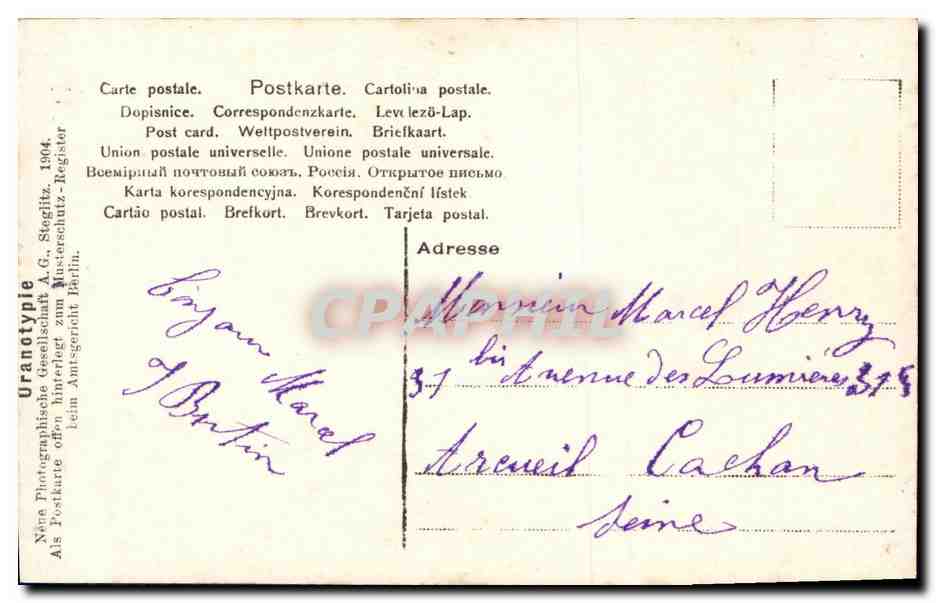 Carte postale. Postkarte. Cartolina postale.
Dopisnice. Correspondenzkarte. Levelező-Lap.
Post card. Weltpostverein. Briefkaart.
Union postale universelle. Unione postale universale.
Всемірный почтовый союзъ. Россія. Открытое письмо
Karta korespondencyjna. Korespondenční lístek
Cartão postal. Brefkort. Brevkort. Tarjeta postal.
Uranotypie
Neue Photographische Gesellschaft A.G., Steglitz. 1904.
Als Postkarte offen hinterlegt zum Musterschutz-Register
beim Amtsgericht Berlin.
Adresse
CPAPHIL
Marcel
J Bertin
Monsieur Marcel Henry
31 bis Avenue des Lumières
Arcueil Cachan
Seine